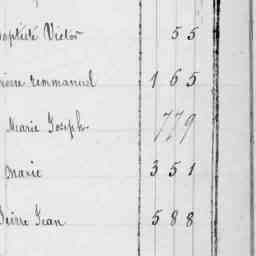 Baptiste Victor 55
Pierre Emmanuel 165
Marie Joseph 779
Marie 351
Pierre Jean 588